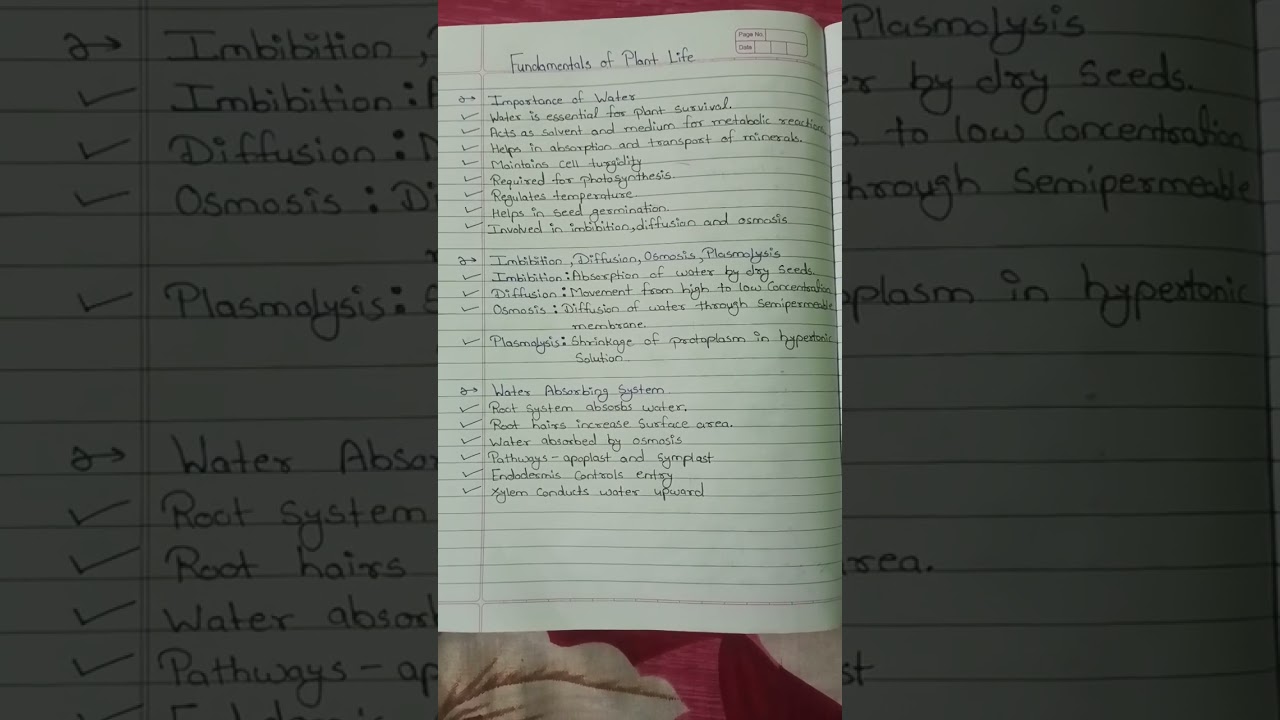 Page No.
Date
Fundamentals of Plant Life
Importance of Water
Water is essential for plant survival.
Acts as solvent and medium for metabolic reactions
Helps in absorption and transport of minerals.
Maintains cell turgidity
Required for photosynthesis.
Regulates temperature
Helps in seed germination.
Involved in imbibition, diffusion and osmosis
Imbibition, Diffusion, Osmosis, Plasmolysis
Imbibition: Absorption of water by dry seeds.
Diffusion: Movement from high to low Concentration
Osmosis: Diffusion of water through semipermeable
membrane.
Plasmolysis: Shrinkage of protoplasm in hypertonic
Solution.
Water Absorbing System
Root system absorbs water.
Root hairs increase surface area.
Water absorbed by osmosis
Pathways - apoplast and symplast
Endodermis controls entry
Xylem conducts water upward